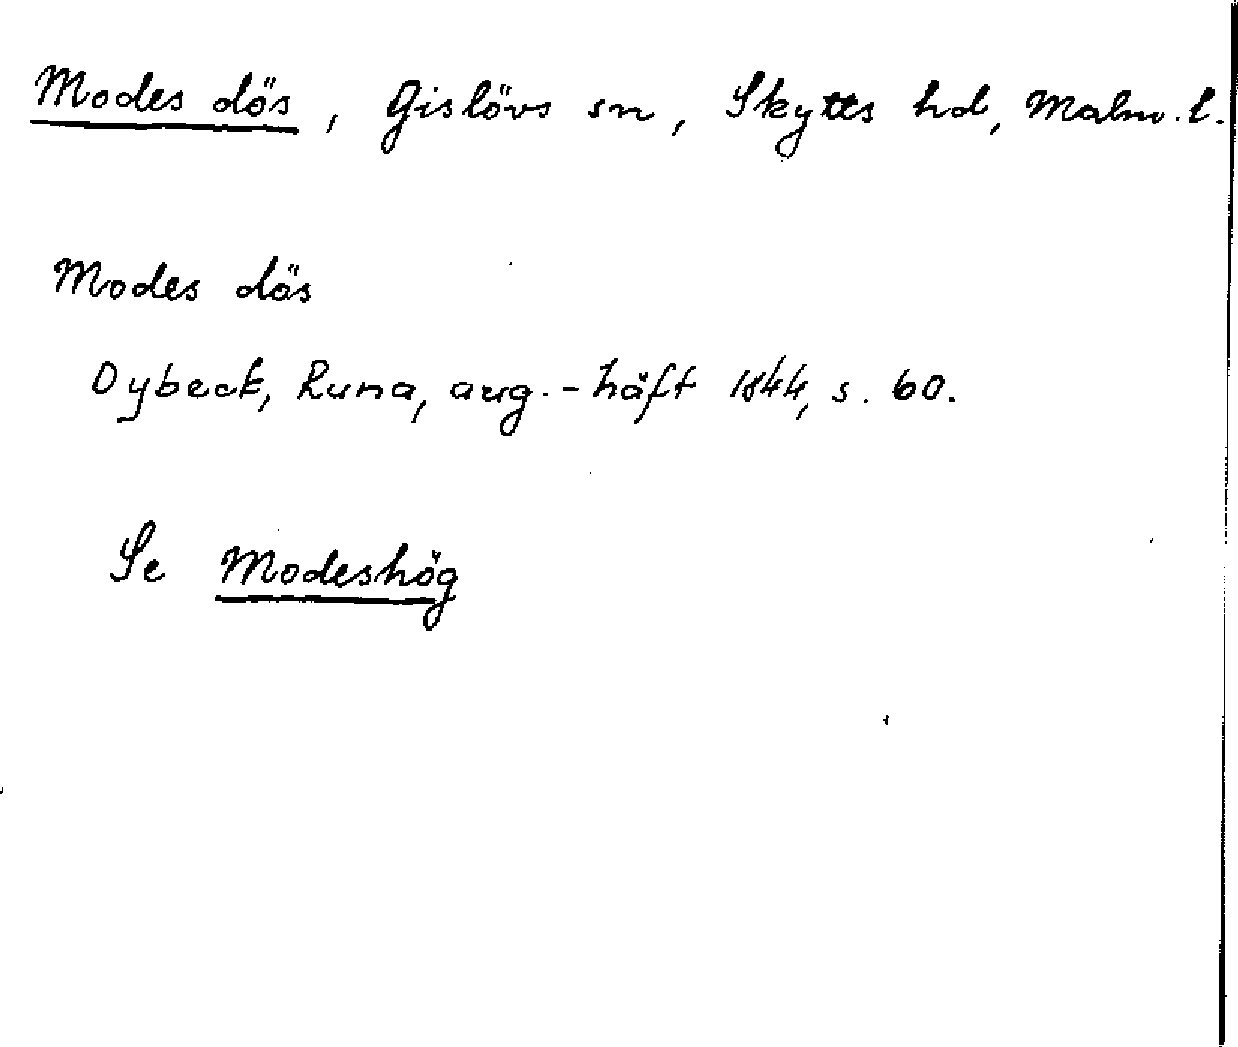 Modes dös, Gislövs sn, Skytts hd, Malm. l.
Modes dös
Dybeck, Runa, aug.-häft 1844, s. 60.
Se Modeshög